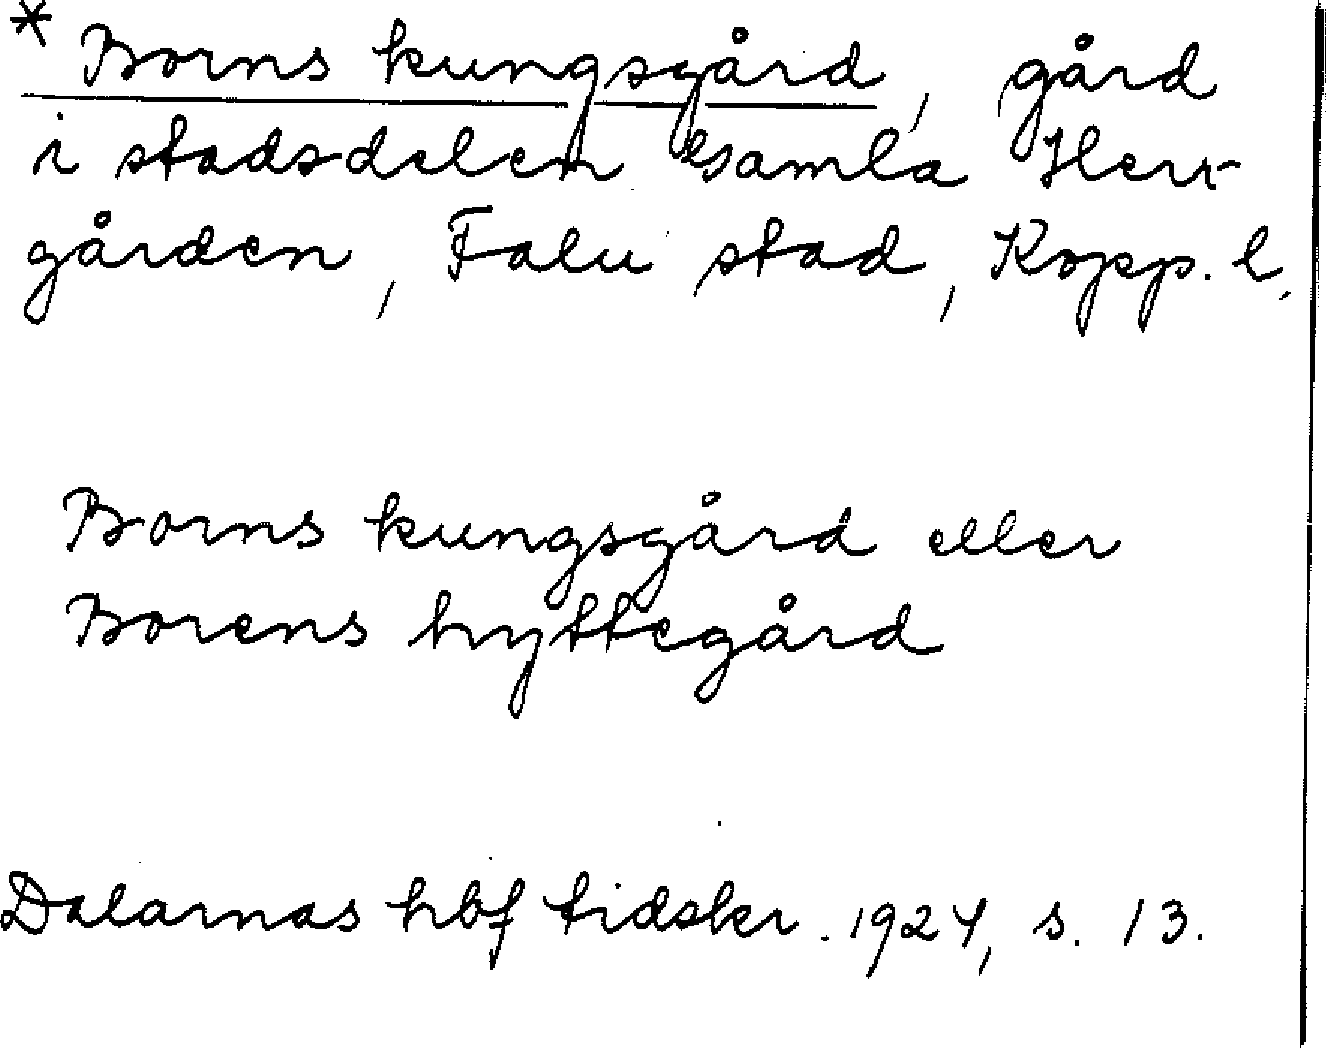 * Borns kungsgård, gård
i stadsdelen Gamla Herr-
gården, Falu stad, Kopp. l.
Borns kungsgård eller
Borens hyttegård
Dalarnas hbf tidskr. 1924, s. 13.